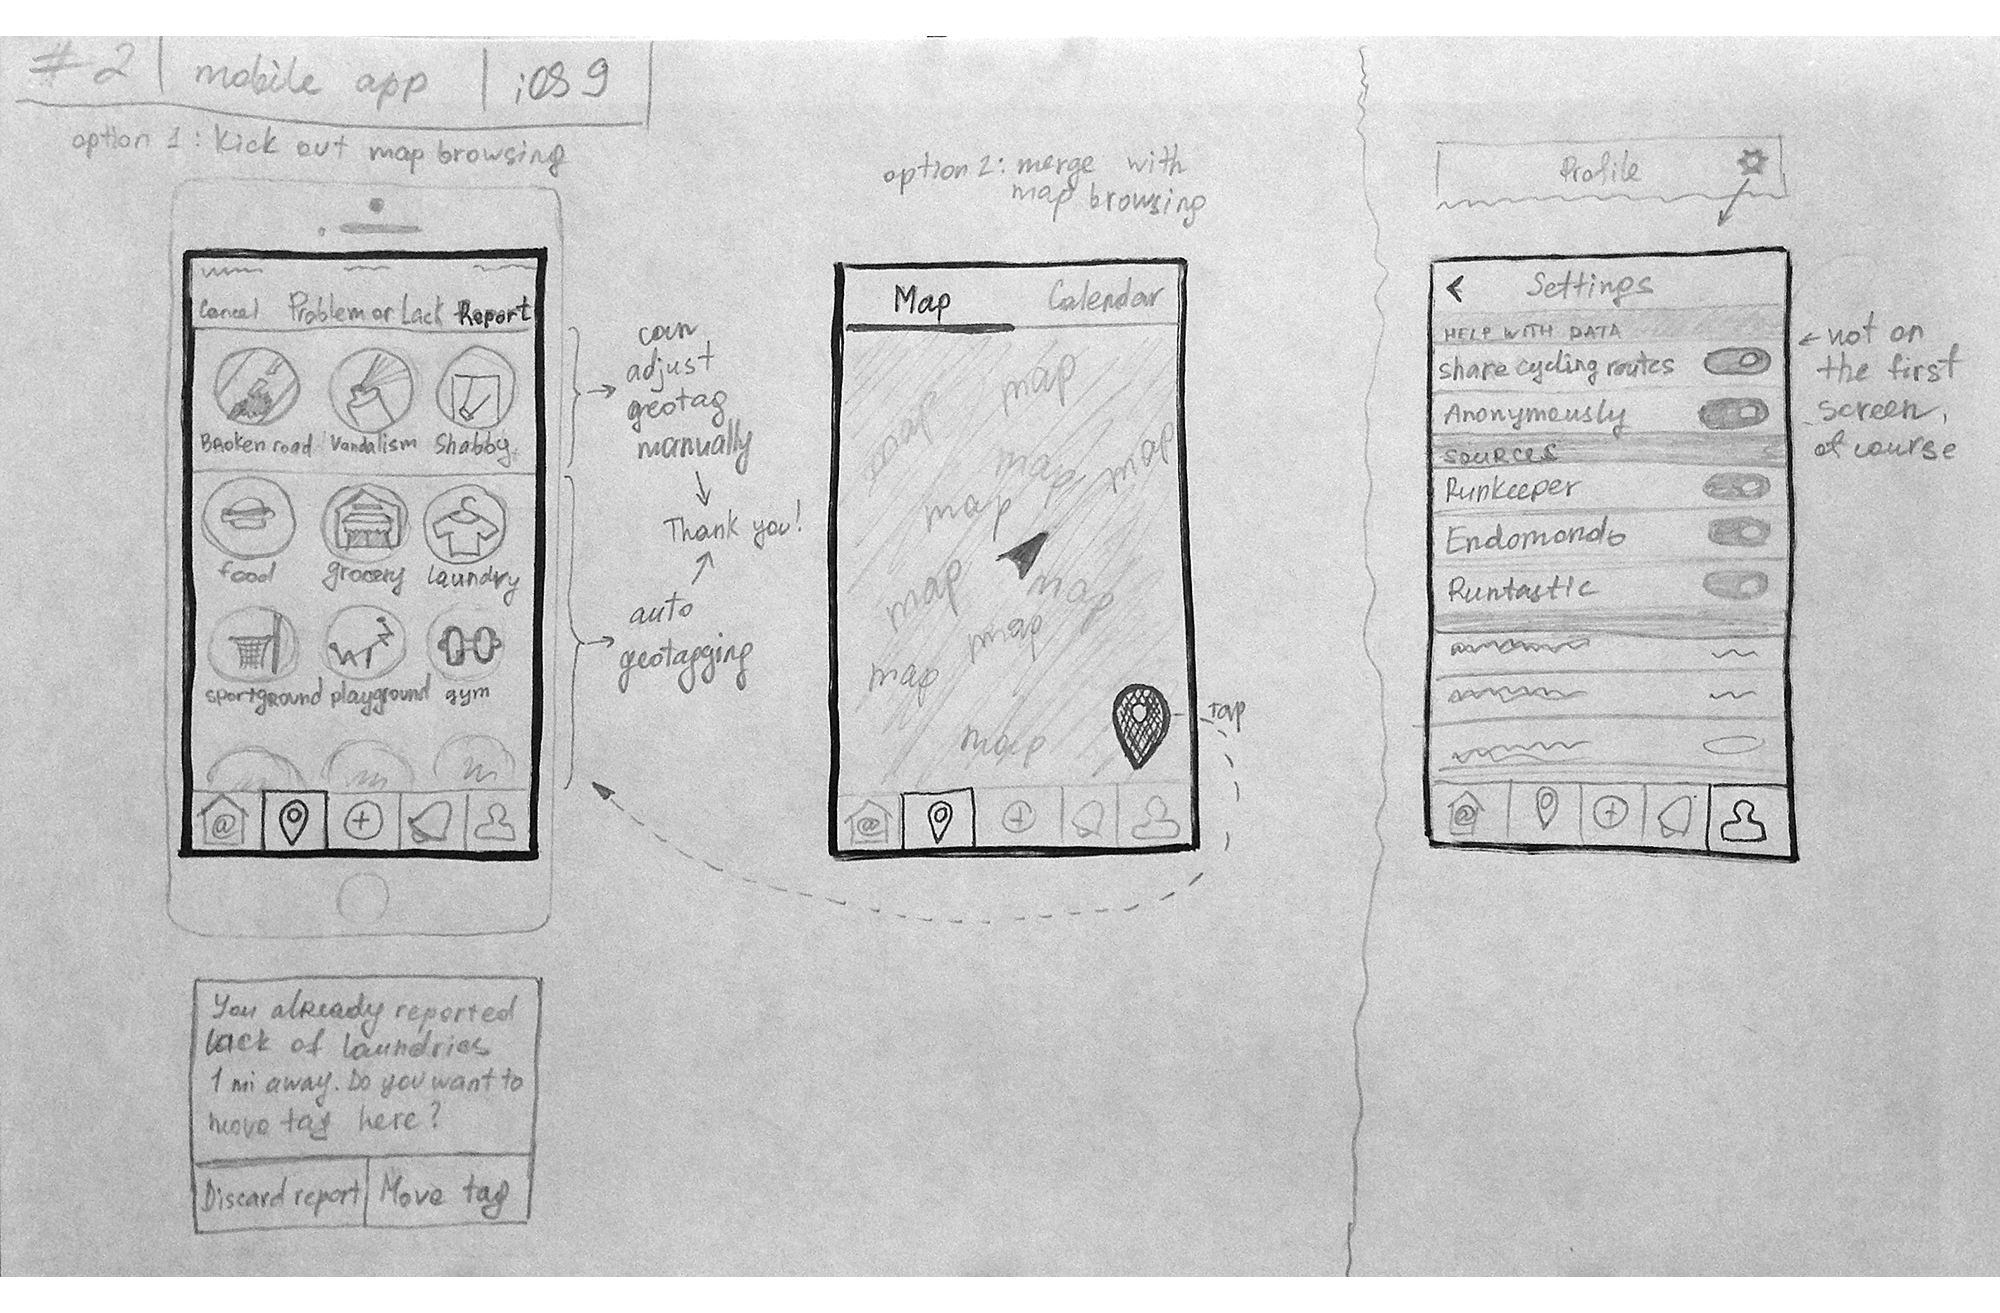 #2 | mobile app | iOS 9
option 1: Kick out map browsing
Cancel Problem or Lack Report
Broken road Vandalism Shabby
food grocery laundry
sportground playground gym
can
adjust
geotag
manually
Thank you!
auto
geotagging
You already reported
lack of laundries
1 mi away. Do you want to
move tag here?
Discard report Move tag
option 2: merge with
map browsing
Map Calendar
map
map
map
map
map
map
map
map
map
map
tap
Profile
Settings
HELP WITH DATA
share cycling routes
Anonymously
SOURCES
Runkeeper
Endomondo
Runtastic
not on
the first
screen,
of course
@
@
@